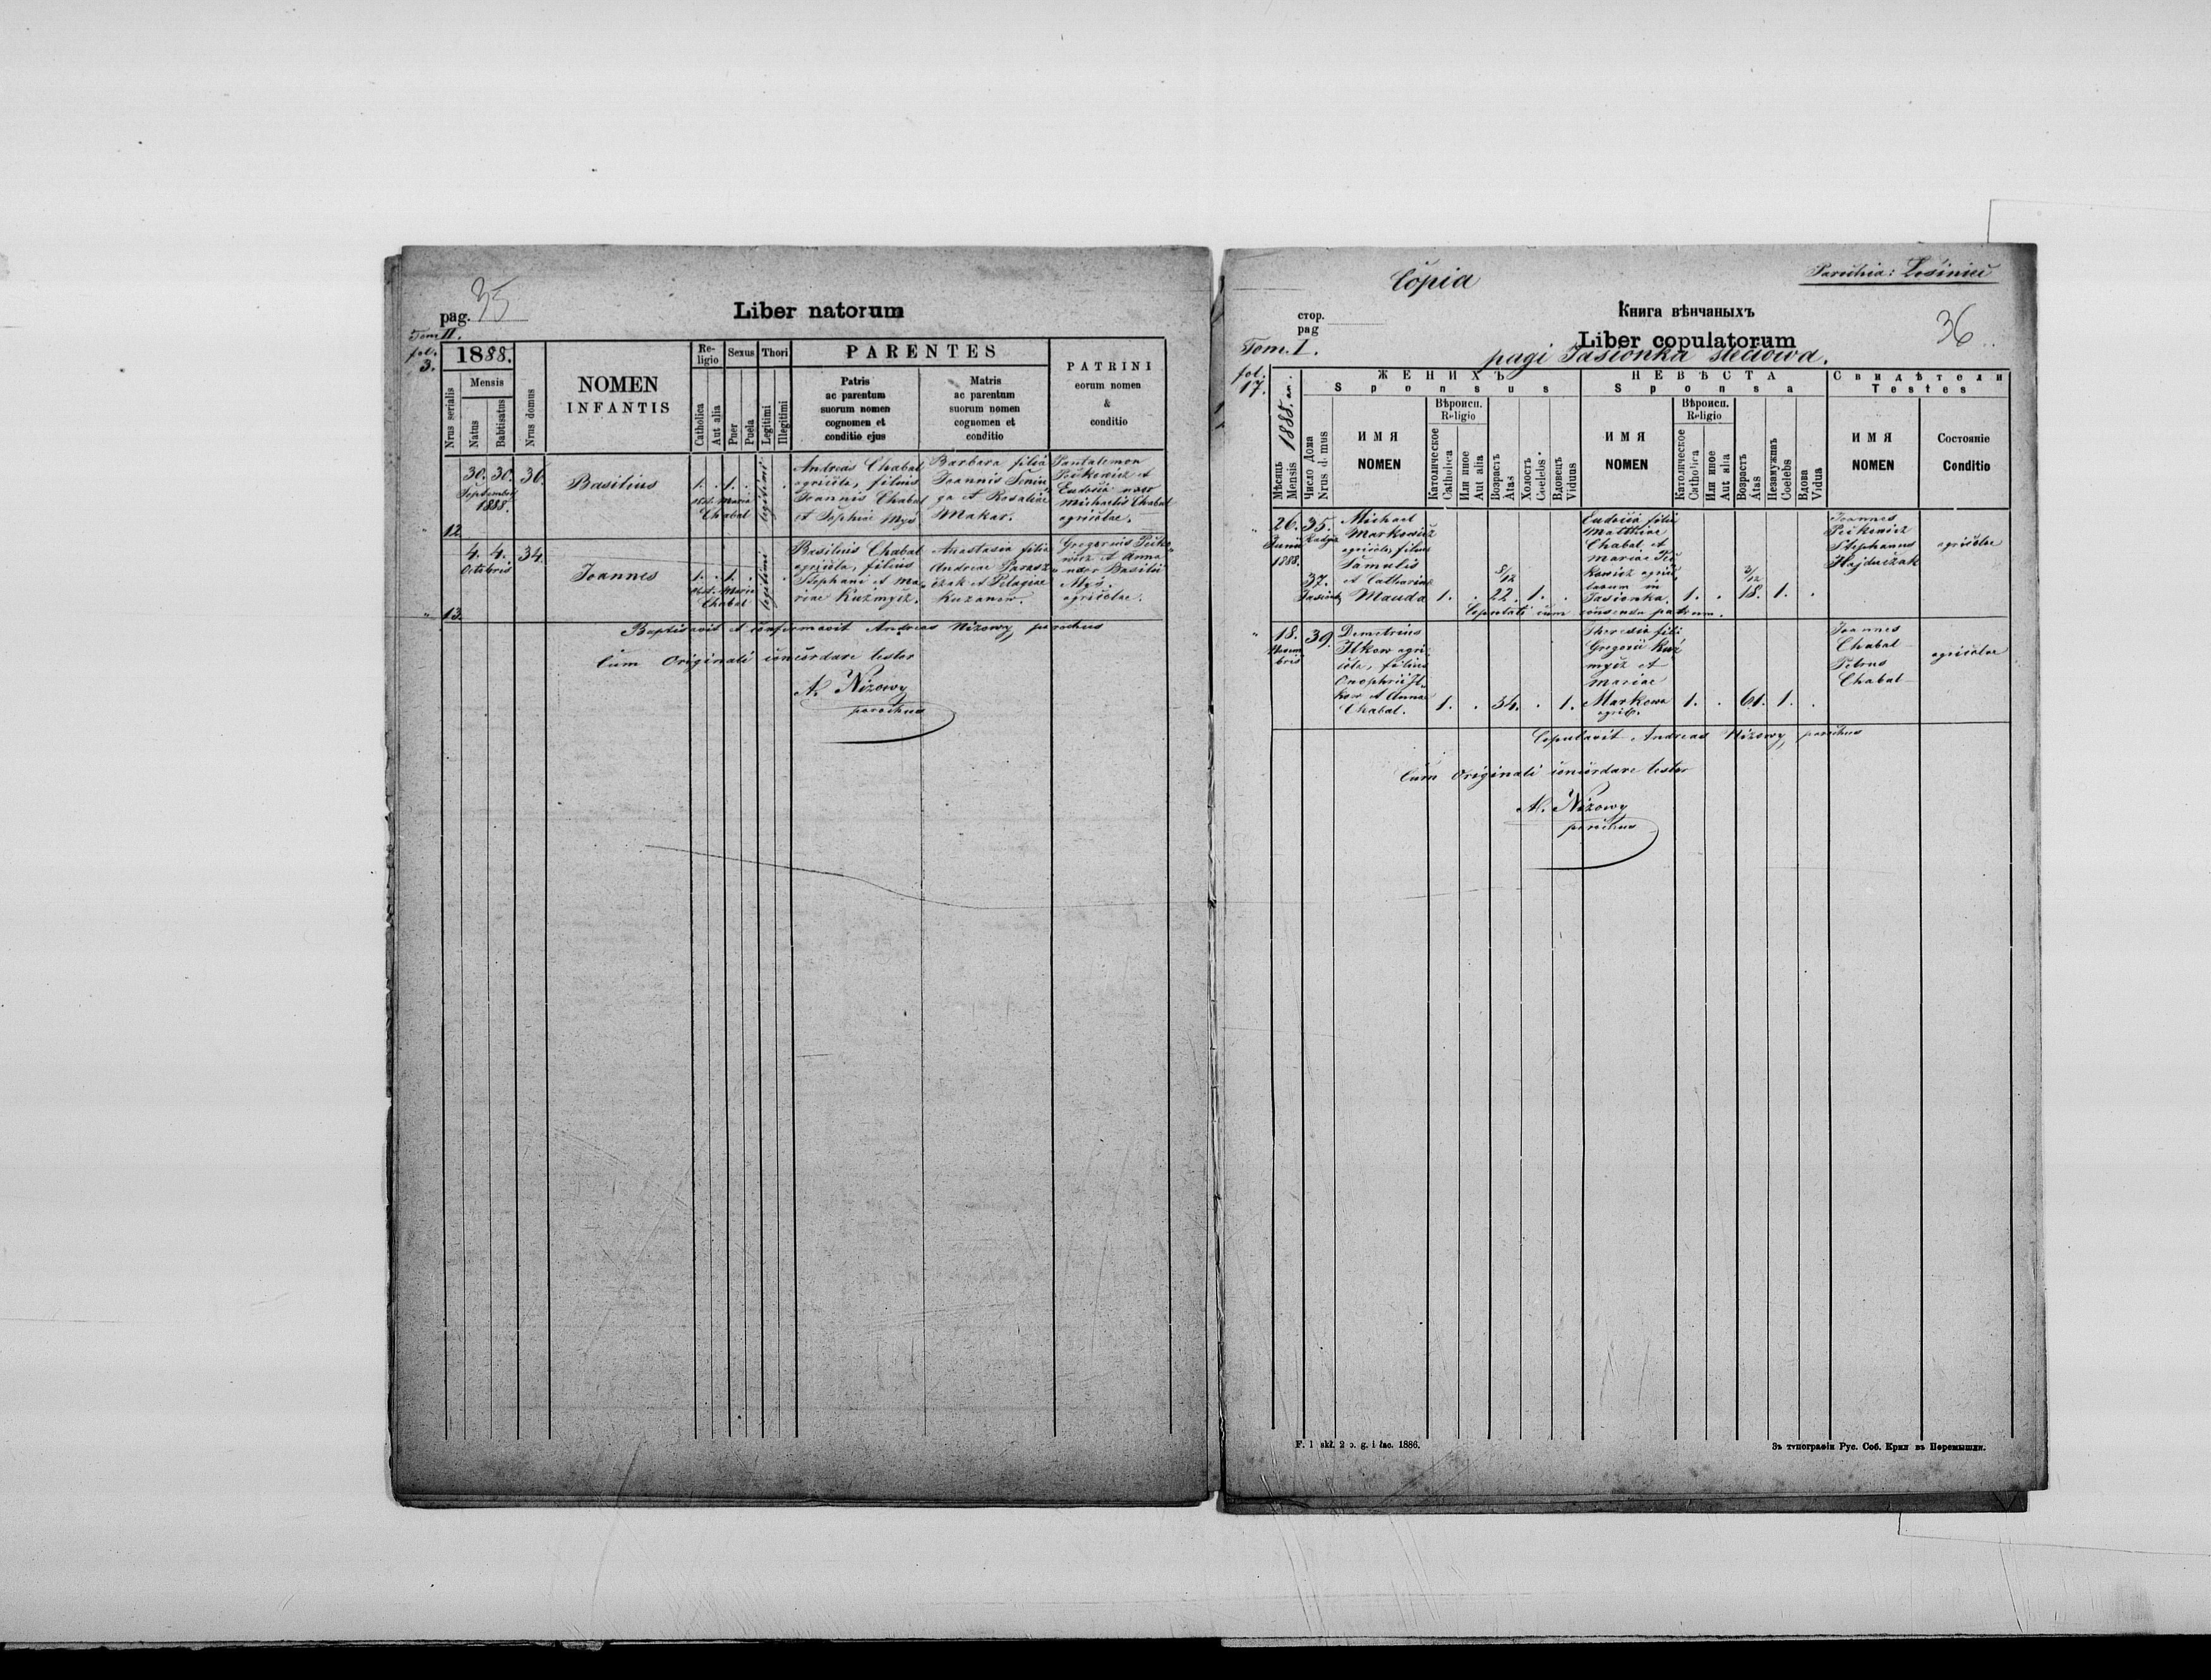 pag. 35
Liber natorum
Tom II.
fol. 3.
1888.
Nrus serialis
Mensis
Natus
Babtisatus
Nrus domus
NOMEN
INFANTIS
Religio
Catholica
Aut alia
Sexus
Puer
Puela
Thori
Legitimi
Illegitimi
PARENTES
Patris
ac parentum
suorum nomen
cognomen et
conditio ejus
Matris
ac parentum
suorum nomen
cognomen et
conditio
PATRINI
eorum nomen
&
conditio
12
30. 30.
Septembris
1888.
36.
Basilius
1. . 1. .
Obst. Maria
Chabal
legitimi
Andreas Chabal
agricola, filius
Joannis Chabal
et Sophiae Myś
Barbara filia
Joannis
et Rosaliae
Makar.
Pantalemon
Pećkewicz et
Eudocia uxor
Michaelis Chabal
agricolae.
13.
4. 4.
Octobris
34.
Joannes
1. . 1. .
Obst. Maria
Chabal
legitimi
Basilius Chabal
agricola, filius
Stephani et Ma-
riae Kuźmycz.
Anastasia filia
Andreae Parasz
czak et Pelagiae
Kuzanow.
Gregorius Pećko
wicz et Anna
uxor Basilii
Myś.
agricolae.
Baptisavit et confirmavit Andreas Nizowy parochus
Cum Originali concordare testor
A. Nizowy
parochus
Copia
Parochia: Łosinici
стор.
pag
Книга вѣнчаныхъ
36
Liber copulatorum
Tom. I.
pagi Jasionka steciowa.
fol. 17.
Мѣсяць
Mensis 1888.
Число Дома
Nrus domus
ЖЕНИХЪ
Sponsus
ИМЯ
NOMEN
Вѣроисп.
Religio
Католическое
Catholica
Или иное
Aut alia
Возрастъ
Atas
Холостъ
Coelebs
Вдовецъ
Viduus
НЕВѢСТА
Sponsa
ИМЯ
NOMEN
Вѣроисп.
Religio
Католическое
Catholica
Или иное
Aut alia
Возрастъ
Atas
Незамужна
Coelebs
Вдова
Vidua
Свидѣтели
Testes
ИМЯ
NOMEN
Состояніе
Conditio
26.
Junii
1888.
35.
37.
Michael
Markowicz
agricola, filius
Samulis
et Catharina
Mauda
1. . 22 8/12 1. .
Eudocia filia
Matthiae
Chabal et
Mariae
Jasionka.
1. . 18. 3/12 1. .
Joannes
Pećkewicz
Stephanus
Hajduczak
agricolae
Copulati cum consensu patrum.
18.
39.
Demetrius
Ilkow agri-
cola, filius
Onophrii Il
kow et Anna
Chabal.
1. . 34. . 1.
Theresia filia
Gregorii Kuź
mycz et
Mariae
Markowa
1. . 61. 1. .
Joannes
Chabal
Petrus
Chabal
agricolae
Copulavit Andreas Nizowy, parochus
Cum Originali concordare testor
A. Nizowy
parochus
F. 1 skł. 2 o. g. i łac. 1886.
Зъ типографіи Рус. Соб. Крил въ Перемышли.